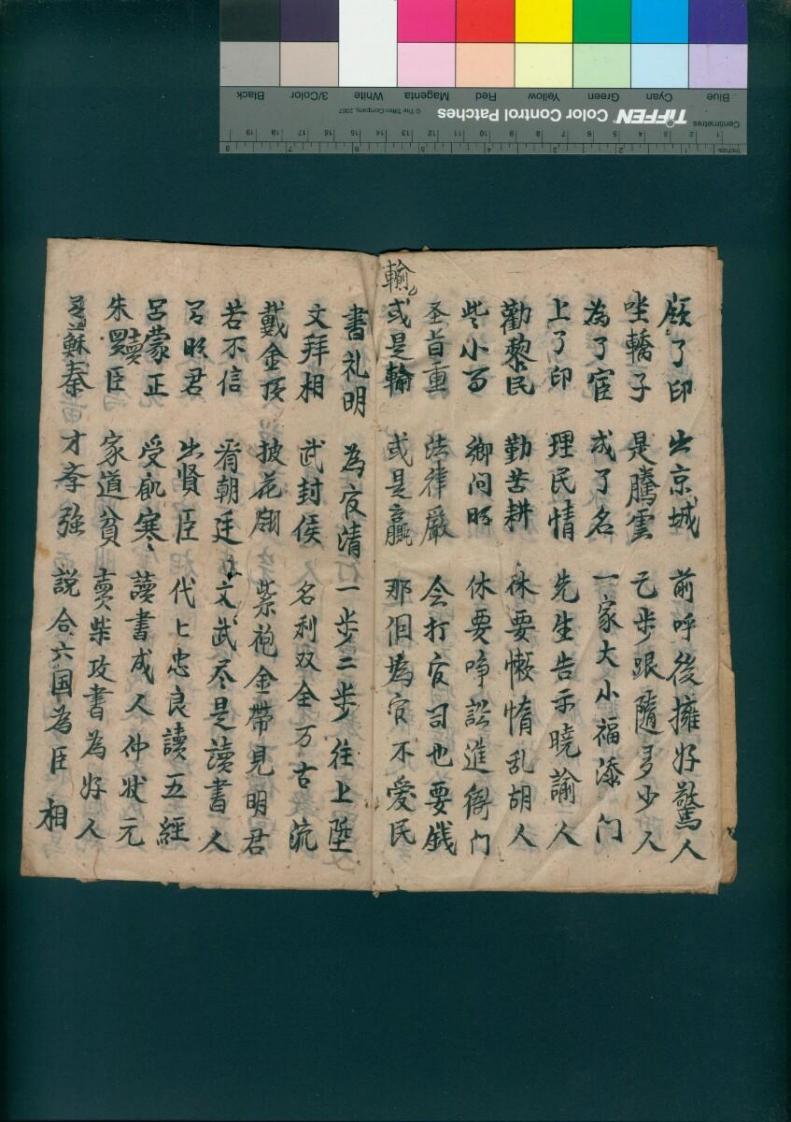 Blue
Cyan
Green
Yellow
Red
Magenta
White
3/Color
Black
TIFFEN Color Control Patches
© The Tiffen Company, 2007
Centimetres
Inches
領了印 出京城 前呼後擁好驚人
坐轎子 是騰雲 乙步跟隨多少人
為了官 成了名 一家大小福添门
上了印 理民情 先生告示曉諭人
勸黎民 勤苦耕 休要懒惰乱胡人
些小事 鄉间明 休要争訟進衙门
圣旨重 法律嚴 会打官司也要銭
輸
或是輸 或是贏 那個為官不愛民
書礼明 為官清 一步二步往上陞
文拜相 武封侯 名利双全万古流
戴金頂 披花翎 紫袍金帶見明君
若不信 看朝廷 文武尽是讀書人
昭君 出賢臣 代匕忠良讀五經
呂蒙正 受飢寒 讀書成人仲状元
朱買臣 家道貧 賣柴攻書為好人
蘇秦 才孝強 説合六国為臣相